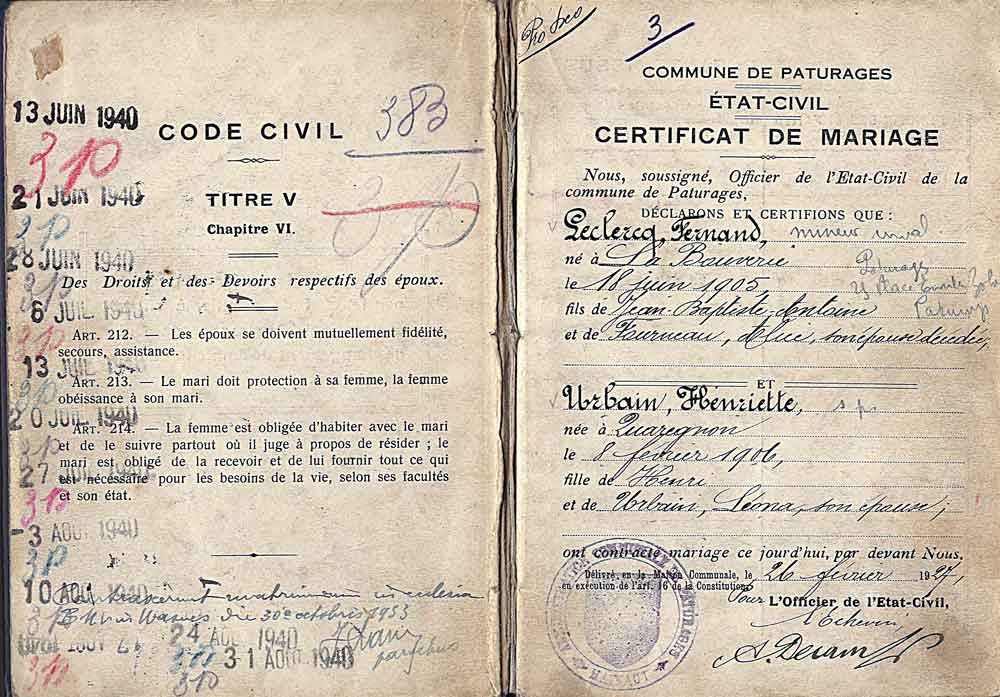 13 JUIN 1940
3p
CODE CIVIL
383
21 JUIN 1940
3p
TITRE V
3p
Chapitre VI.
28 JUIN 1940
3p
Des Droits et des Devoirs respectifs des époux.
6 JUIL
3p
ART. 212. — Les époux se doivent mutuellement fidélité,
secours, assistance.
13 JUIL 1940
3p
ART. 213. — Le mari doit protection à sa femme, la femme
obéissance à son mari.
20 JUIL 1940
3p
ART. 214. — La femme est obligée d'habiter avec le mari
et de le suivre partout où il juge à propos de résider ; le
mari est obligé de la recevoir et de lui fournir tout ce qui
est nécessaire pour les besoins de la vie, selon ses facultés
et son état.
27 JUIL 1940
3p
-3 AOU 1940
3p
10 AOU 1940
matrimonium in ecclesia
Wasmes die 30 octobris 1933
24 AOU 1940
31 AOU 1940
3p
3p
3p
Pro Deo
3
COMMUNE DE PATURAGES
ÉTAT-CIVIL
CERTIFICAT DE MARIAGE
Nous, soussigné, Officier de l'Etat-Civil de la
commune de Paturages,
DÉCLARONS ET CERTIFIONS QUE :
Leclercq, Fernand, mineur inval
né à La Bouverie
Paturages
le 18 juin 1905
Place
fils de Jean-Baptiste-Antoine
Paturages
et de Fourneau, Alice, son épouse décédée,
ET
Urbain, Henriette, s.p.
née à Quaregnon
le 8 février 1906,
fille de Henri
et de Urbain, Léona, son épouse ;
ont contracté mariage ce jourd'hui, par devant Nous.
Délivré, en la Maison Communale, le 26 février 1927,
en exécution de l'art. 16 de la Constitution.
Pour L'Officier de l'Etat-Civil,
L'Echevin,
ADMINISTRATION COMMUNALE DE PATURAGES
HAINAUT